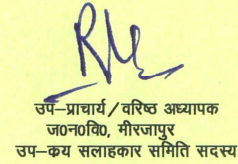 उप–प्राचार्य / वरिष्ठ अध्यापक
ज0न0वि0, मीरजापुर
उप–कय सलाहकार समिति सदस्य